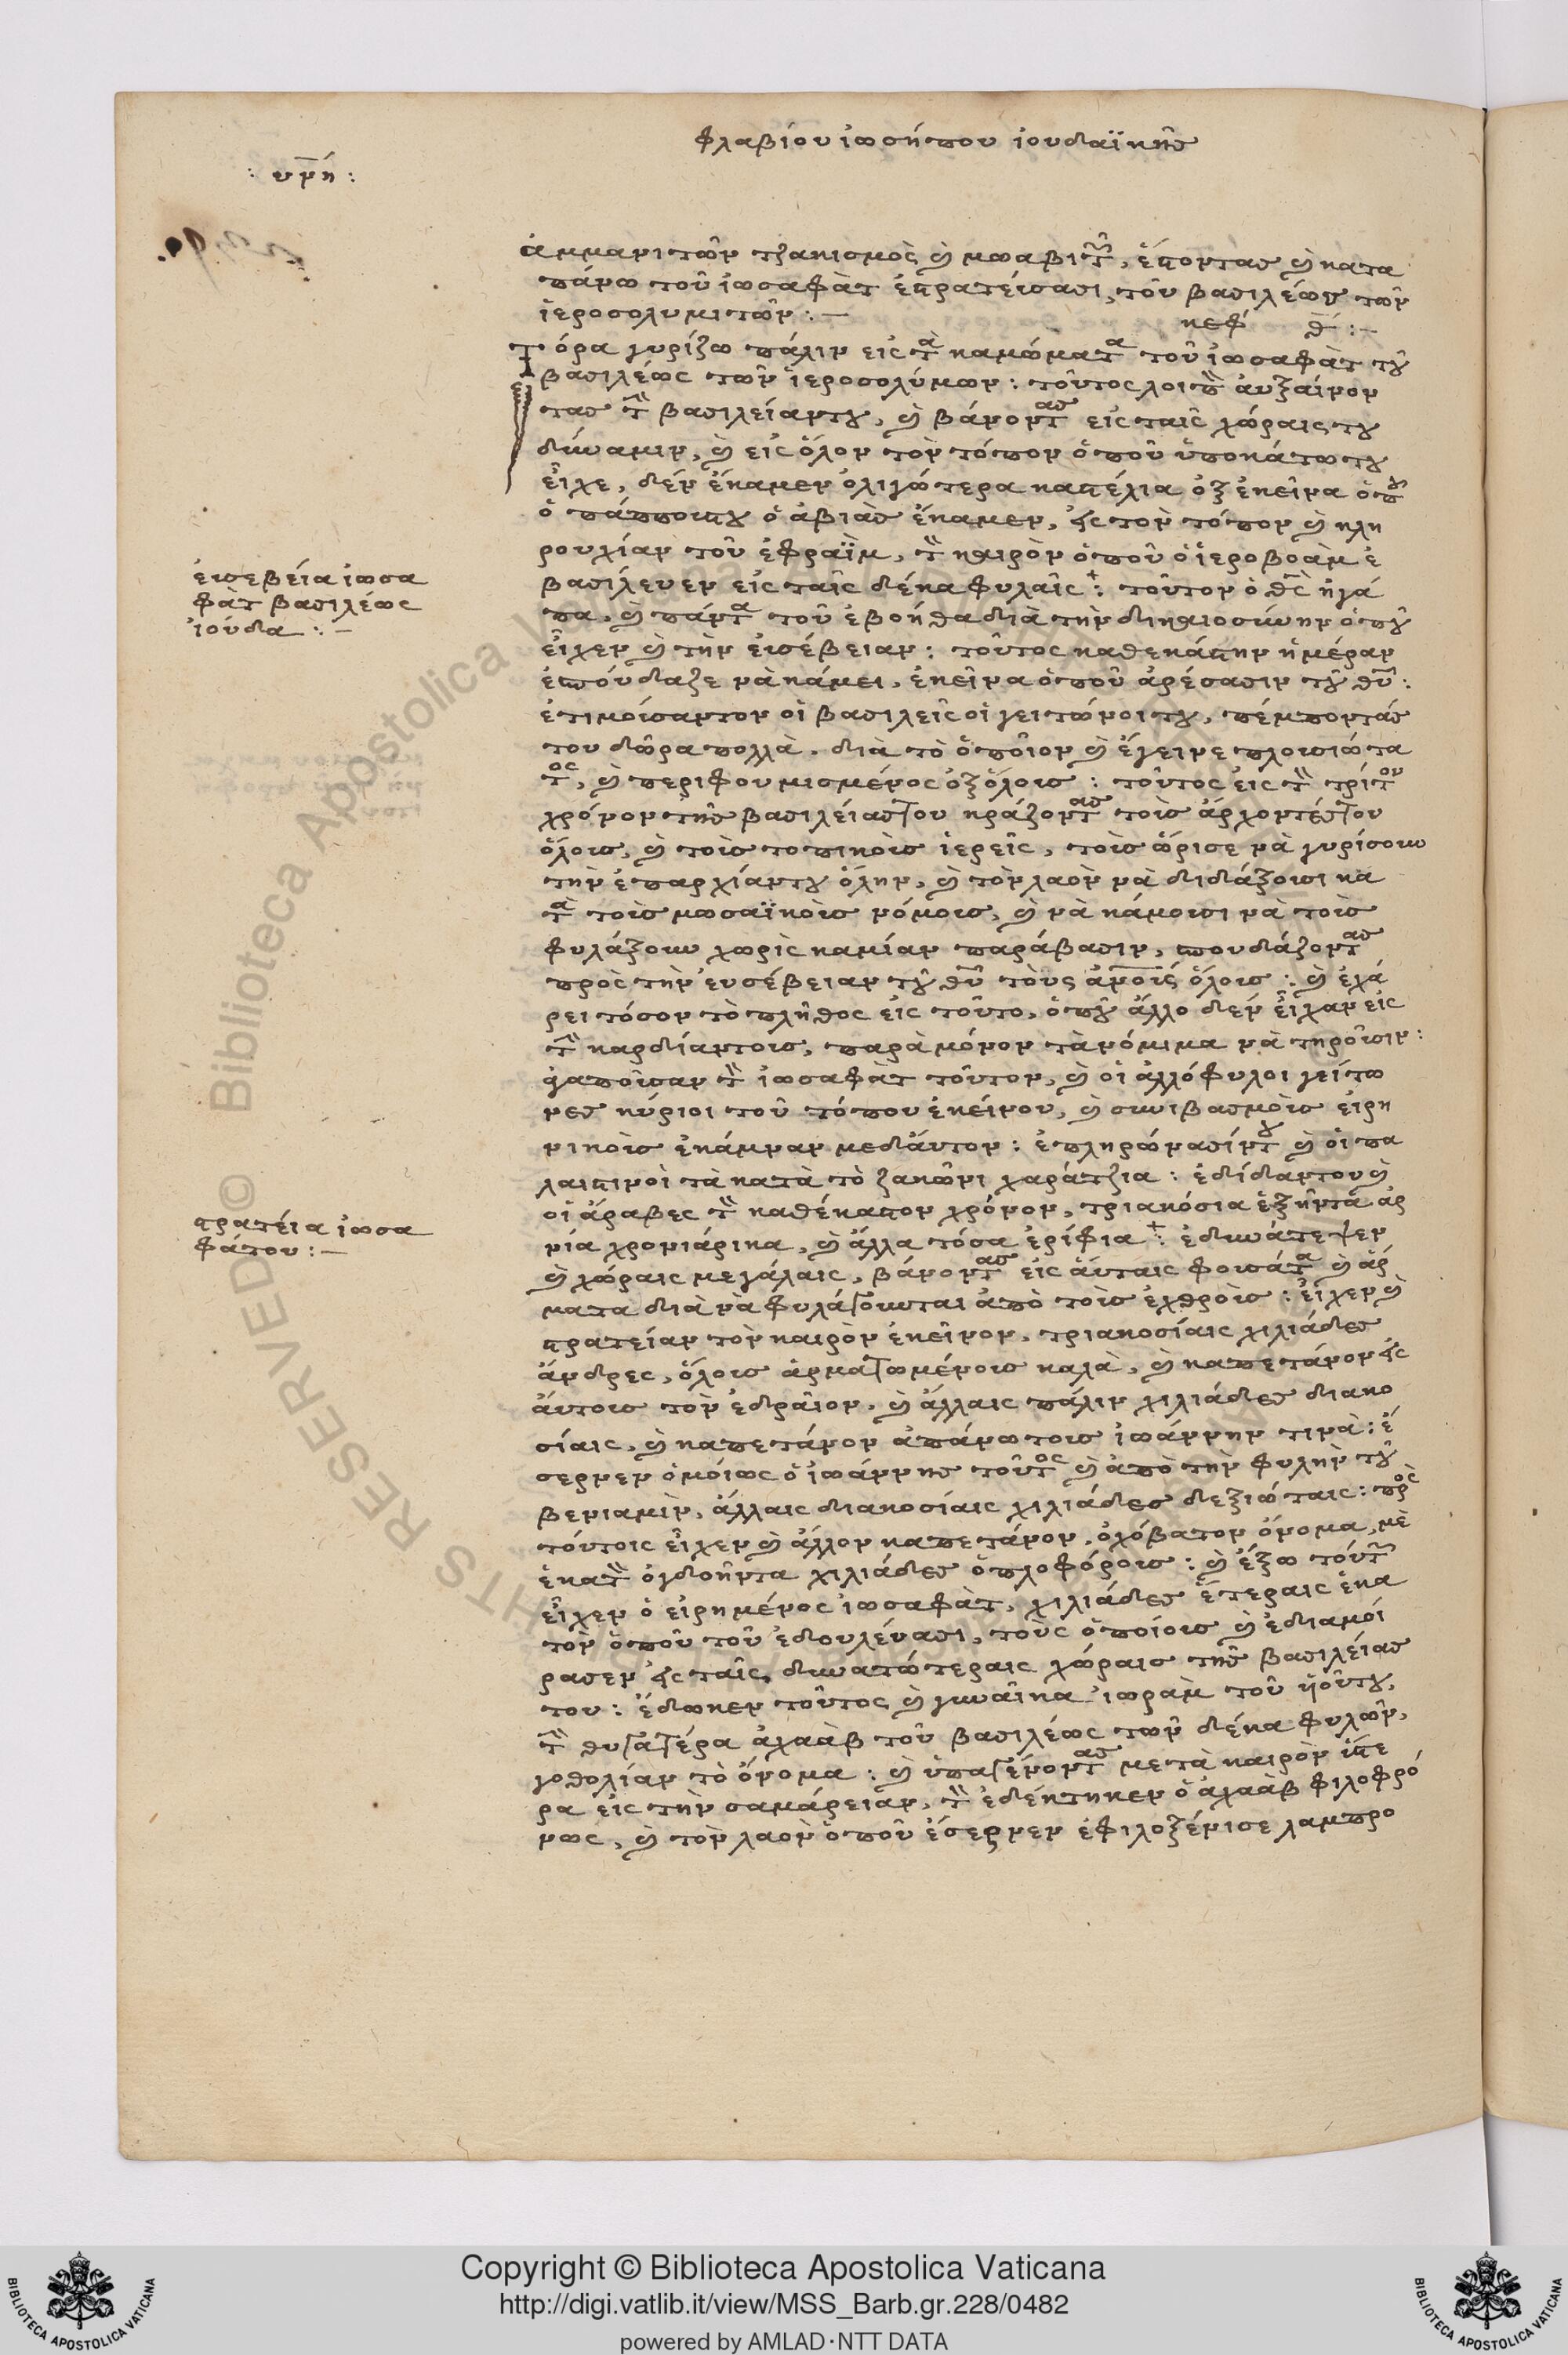 φλαβίου ἰωσήπου ἰουδαϊκῆς
: υμή :
ἀμμανιτῶν τζακισμὸς καὶ μωαβιτῶν, ἔστοντας καὶ κατα
πάνω τοῦ ἰωσαφὰτ ἐστρατεύσασι, τοῦ βασιλέως τῶν
ἱεροσολυμιτῶν : —
κεφ δ : —
Τόρα γυρίζω πάλιν εἰς τὰ καμώματα τοῦ ἰωσαφὰτ τοῦ
βασιλέως τῶν ἱεροσολύμων : τοῦτος λοιπὸν αὐξαίνον
τας τὴν βασιλείαν του, καὶ βάνοντας εἰς ταῖς χώραις του
δύναμιν, καὶ εἰς ὅλον τὸν τόπον ὁποῦ ὑποκάτω του
εἶχε, δὲν ἔκαμεν ὀλιγώτερα καστέλια ὀξ ἐκεῖνα ὁποῦ
ὁ πάππους του ὁ ἀβιὰς ἔκαμεν, εἰς τὸν τόπον καὶ κλη
ρουχίαν τοῦ ἐφραῒμ, τὸν καιρὸν ὁποῦ ὁ ἱεροβοὰμ ἐ
βασίλευεν εἰς ταῖς δέκα φυλαῖς : τοῦτον ὁ θς ἠγά
πα, καὶ πάντα τοῦ ἐβοήθα διὰ τὴν δικαιοσύνην ὁποῦ
εἶχεν καὶ τὴν εὐσέβειαν : τοῦτος καθεκάστην ἡμέραν
ἐσπούδαζε νὰ κάμει, ἐκεῖνα ὁποῦ ἀρέσασιν τοῦ θυ :
ἐτιμοῦσαν τον οἱ βασιλεῖς οἱ γειτώνοι του, πέμποντάς
του δῶρα πολλὰ, διὰ τὸ ὁποῖον καὶ ἔγεινε πλουσιώτα
τος, καὶ περιφουμισμένος ὀξ ὅλους : τοῦτος εἰς τὸν τρίτον
χρόνον τῆς βασιλείας του κράζοντας τοὺς ἄρχοντές του
ὅλους, καὶ τοὺς τοπικοὺς ἱερεῖς, τοὺς ὥρισε νὰ γυρίσουν
τὴν ἐπαρχίαν του ὅλην, καὶ τὸν λαὸν νὰ διδάξουσι κα
τὰ τοὺς μωσαϊκοὺς νόμους, καὶ νὰ κάμουσι νὰ τοὺς
φυλάξουν χωρὶς καμίαν παράβασιν, σπουδάζοντας
πρὸς τὴν εὐσέβειαν τοῦ θυ τοὺς ἀνοῖς ὅλους : καὶ ἐχά
ρει τόσον τὸ πλῆθος εἰς τοῦτο, ὁποῦ ἄλλο δὲν εἶχαν εἰς
τὴν καρδίαν τους, παρὰ μόνον τὰ νόμιμα νὰ τηροῦσιν :
ἀγαποῦσαν τὸν ἰωσαφὰτ τοῦτον, καὶ οἱ ἀλλόφυλοι γείτω
νες κύριοι τοῦ τόπου ἐκείνου, καὶ συνιβασμοὺς εἰρη
νικοὺς ἐκάμναν μεδαὐτον : ἐπληρώνασίν του καὶ οἱ πα
λαιστινοὶ τὰ κατὰ τὸ ζακῶνι χαράτζια : ἐδίδαν του καὶ
οἱ ἄραβες τὸν καθέκαστον χρόνον, τριακόσια ἑξῆντα ἀρ
νία χρονιάρικα, καὶ ἄλλα τόσα ἐρίφια : ἐδυνάτεψεν
καὶ χώραις μεγάλαις, βάνοντας εἰς αὐταις φουσάτα καὶ ἄρ
ματα διὰ νὰ φυλάγουνται ἀπὸ τοὺς ἐχθροὺς : εἶχεν καὶ
στρατείαν τὸν καιρὸν ἐκεῖνον, τριακοσίαις χιλιάδες
ἄνδρες, ὅλους ἀρματωμένους καλὰ, καὶ καπετάνον εἰς
αὐτους τὸν ἐδραῖον, καὶ ἄλλαις πάλιν χιλιάδες διακο
σίαις, καὶ καπετάνον ἀπάνω τους ἰωάννην τινὰ : ἔ
σερνεν ὁμοίως ὁ ἰωάννης τοῦτος καὶ ἀπὸ τὴν φυλὴν τοῦ
βενιαμὶν, ἄλλαις διακοσίαις χιλιάδες δεξιώταις : πρὸς
τούτοις εἶχεν καὶ ἄλλον καπετάνον, ὀχόβατον ὄνομα, μὲ
ἑκατὸν ὀγδοῆντα χιλιάδες ὁπλοφόρους : καὶ ἔξω τούτων
εἶχεν ὁ εἰρημένος ἰωσαφὰτ, χιλιάδες ἕτεραις ἑκα
τὸν ὁποῦ τοῦ ἐδουλέυασι, τοὺς ὁποίους καὶ ἐδιαμοί
ρασεν εἰς ταῖς δυνατώτεραις χώραις τῆς βασιλείας
του : ἔδωκεν τοῦτος καὶ γυναῖκα ἰωρὰμ τοῦ ὑοῦ του,
τὴν θυγατέρα ἀχαὰβ τοῦ βασιλέως τῶν δέκα φυλῶν,
γοθολίαν τὸ ὄνομα : καὶ ὑπαγένοντας μετὰ καιρὸν ὕστε
ρα εἰς τὴν σαμάρειαν, τὸν ἐδέκτηκεν ὁ ἀχαὰβ φιλοφρό
νως, καὶ τὸν λαὸν ὁποῦ ἔσερνεν ἐφιλοξένισε λαμπρο
ἐυσεβεία ἰωσα
φὰτ βασιλέως
ἰούδα : —
στρατεία ἰωσα
φάτου : —
© Biblioteca Apostolica Vaticana
RIGHTS RESERVED
Copyright © Biblioteca Apostolica Vaticana
http://digi.vatlib.it/view/MSS_Barb.gr.228/0482
powered by AMLAD·NTT DATA
BIBLIOTECA APOSTOLICA VATICANA
BIBLIOTECA APOSTOLICA VATICANA